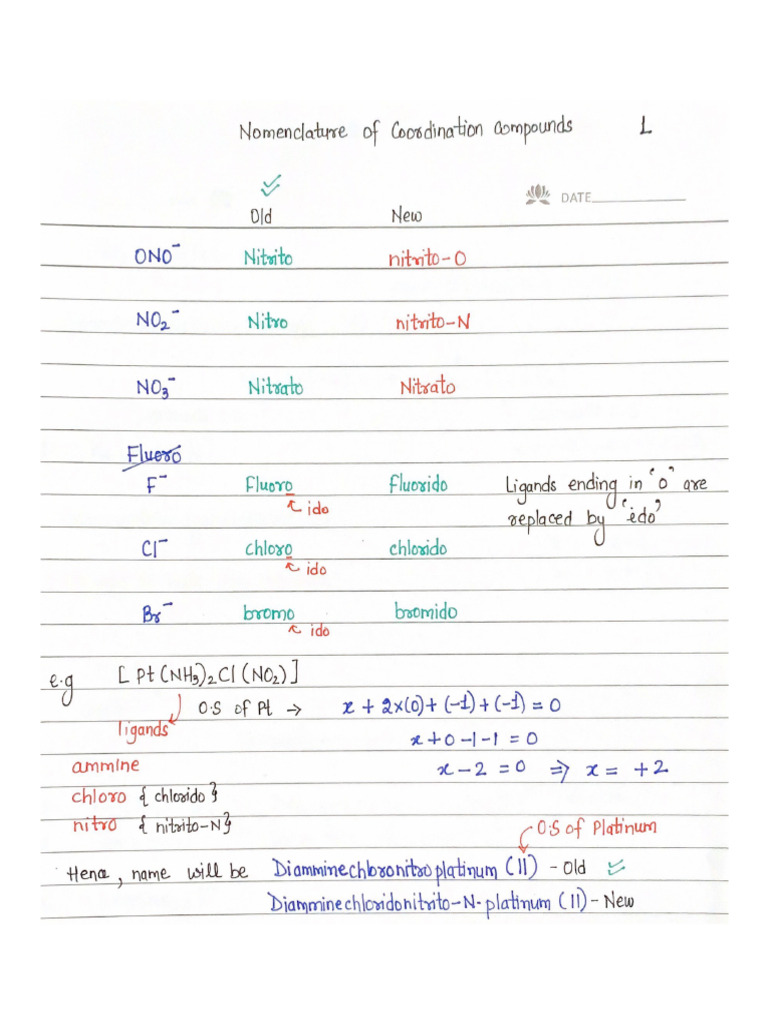 Nomenclature of Coordination Compounds 1
DATE
Old New
ONO⁻ Nitrito nitrito-O
NO₂⁻ Nitro nitrito-N
NO₃⁻ Nitrato Nitrato
Fluoro
F⁻ Fluoro fluorido Ligands ending in 'o' are
ido replaced by 'ido'
Cl⁻ chloro chlorido
ido
Br⁻ bromo bromido
ido
e.g [Pt(NH₃)₂Cl(NO₂)]
O.S of Pt → x + 2×(0) + (-1) + (-1) = 0
ligands
x + 0 - 1 - 1 = 0
ammine x - 2 = 0 ⇒ x = +2
chloro { chlorido }
nitro { nitrito-N }
O.S of Platinum
Hence, name will be Diamminechloronitroplatinum (II) - Old
Diamminechloridonitrito-N-platinum (II) - New